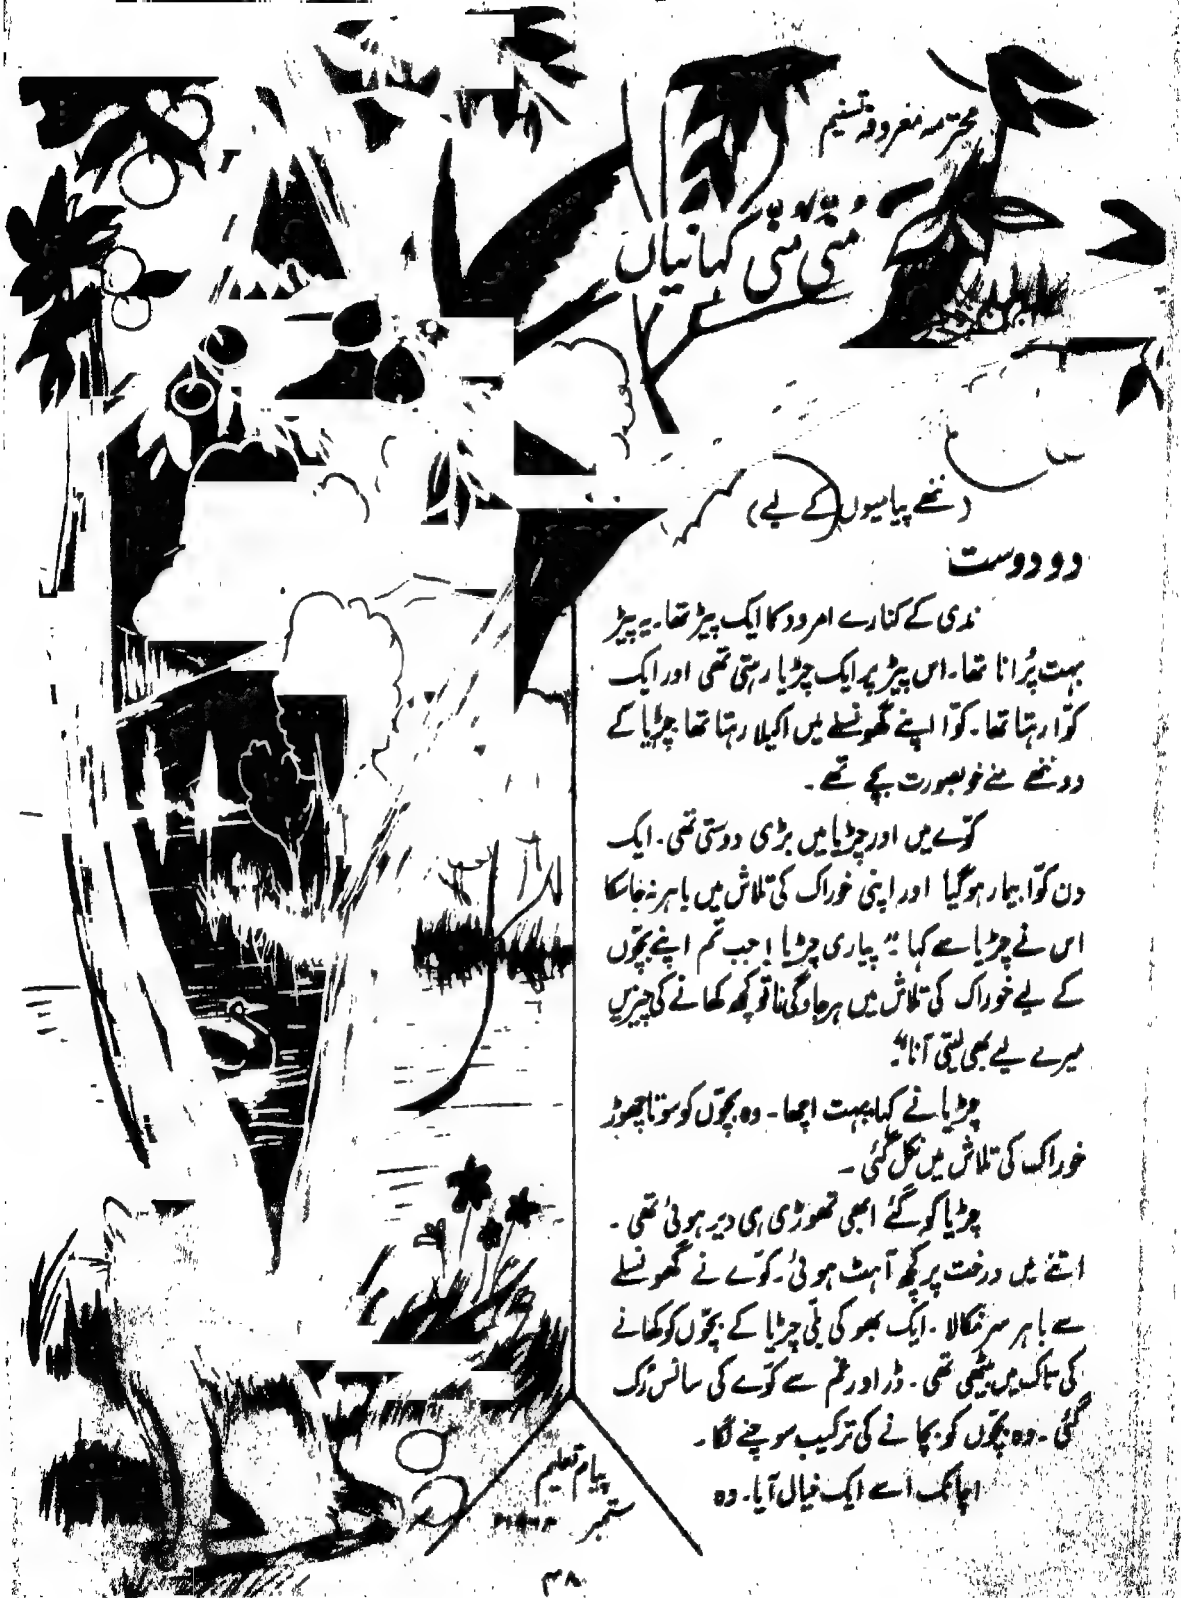 محترمہ معروفہ تسنیم
مُنّی مُنّی کہانیاں
(ننھے پیامیوں کے لیے)
دو دوست
ندی کے کنارے امرود کا ایک پیڑ تھا۔ یہ پیڑ
بہت پُرانا تھا۔ اس پیڑ پر ایک چڑیا رہتی تھی اور ایک
کوّا رہتا تھا۔ کوّا اپنے گھونسلے میں اکیلا رہتا تھا چڑیا کے
دو ننھے منے خوبصورت بچے تھے۔
کوّے میں اور چڑیا میں بڑی دوستی تھی۔ ایک
دن کوّا بیمار ہو گیا اور اپنی خوراک کی تلاش میں باہر نہ جا سکا
اس نے چڑیا سے کہا "پیاری چڑیا! جب تم اپنے بچّوں
کے لیے خوراک کی تلاش میں باہر جاؤگی نا تو کچھ کھانے کی چیزیں
میرے لیے بھی لیتی آنا"۔
چڑیا نے کہا بہت اچھا۔ وہ بچّوں کو سوتا چھوڑ
خوراک کی تلاش میں نکل گئی۔
چڑیا کو گئے ابھی تھوڑی ہی دیر ہوئی تھی۔
اتنے میں درخت پر کچھ آہٹ ہوئی۔ کوّے نے گھونسلے
سے باہر سر نکالا۔ ایک بھوکی بلّی چڑیا کے بچّوں کو کھانے
کی تاک میں بیٹھی تھی۔ ڈر اور غم سے کوّے کی سانس رُک
گئی۔ وہ بچّوں کو بچانے کی ترکیب سوچنے لگا۔
اچانک اسے ایک خیال آیا۔ وہ
پیام تعلیم
ستمبر
۴۸